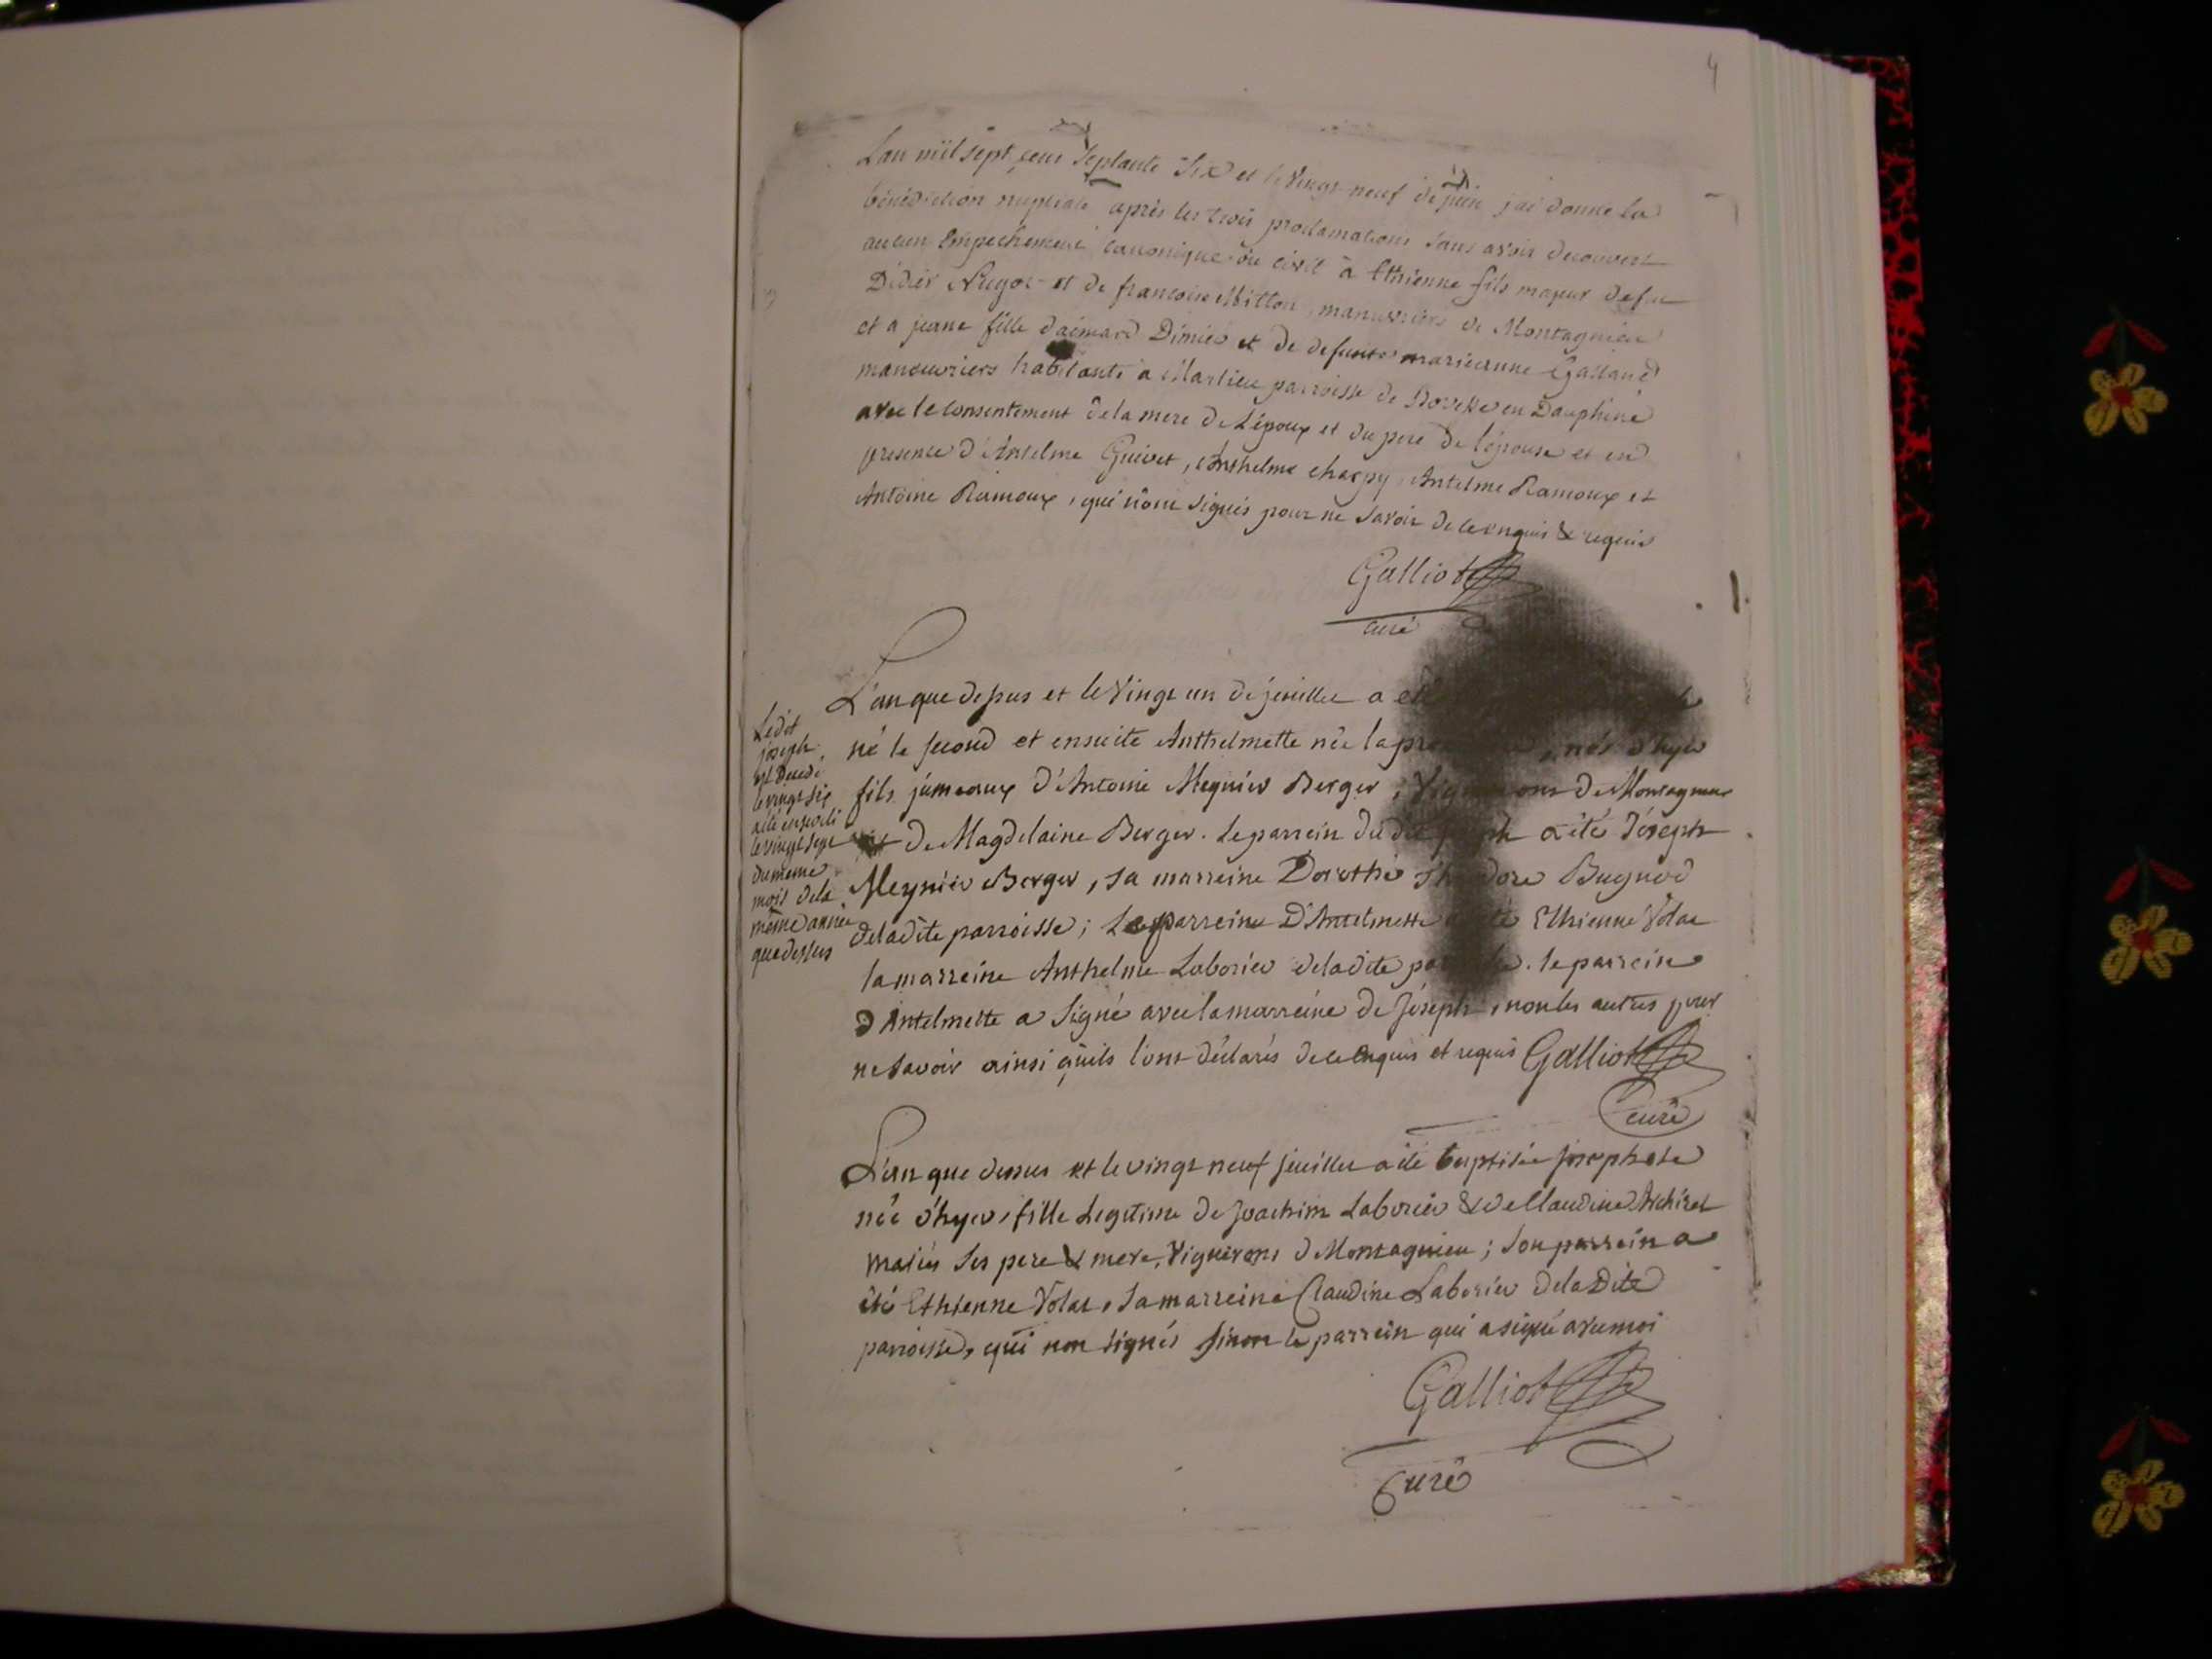 4
L'an mil sept cens septante six et le vingt neuf de juin j'ai donné la
bénédiction nuptiale après les trois proclamations sans avoir decouvert
aucun empechement canonique ou civil à Ethienne fils majeur de feu
Didier et de francoise Mitton manuvriers de Montagnieu
et a jeane fille d'aimard Dimier et de defunte marieanne Galland
manouvriers habitants a Marlieu parroisse de en Dauphiné
avec le consentement de la mere de L'époux et du pere de l'épouse et en
presence d'Antelme Guivet, Anthelme charpy, Antelme Ramoux et
Antoine Ramoux, qui n'ont signés pour ne savoir de ce enquis & requis
Galliot
curé
L'an que dessus et le vingt un de jeuillet a été
né le second et ensuite Anthelmette née la , nés d'hyer
fils jumeaux d'Antoine Meynier Berger, de Montagnieu
et de Magdelaine Berger. Le parrein du dit a été Joseph
Meynier Berger, sa marreine Dorothé Bugnod
de la dite parroisse; Le parreine D'Antelmette Ethienne Volat
la marreine Anthelme Laborier de la dite . le parreine
d'Antelmette a signé avec la marreine de Joseph, non les autres pour
ne savoir ainsi qu'ils l'ont déclarés de ce enquis et requis Galliot
curé
Ledit
joseph
est decedé
le vingt six
a été enseveli
le vingt sept
du meme
mois de la
même année
que dessus
L'an que dessus et le vingt neuf jeuillet a été baptisée josephete
née d'hyer, fille Legitime de Joachim Laborier & de Claudine
mariés ses pere & mere, vignerons de Montagnieu; son parrein a
été Ethienne Volat, sa marreine Claudine Laborier de la Dite
parroisse, qui non signés sinon le parrein qui a signé avec moi
Galliot
Curé